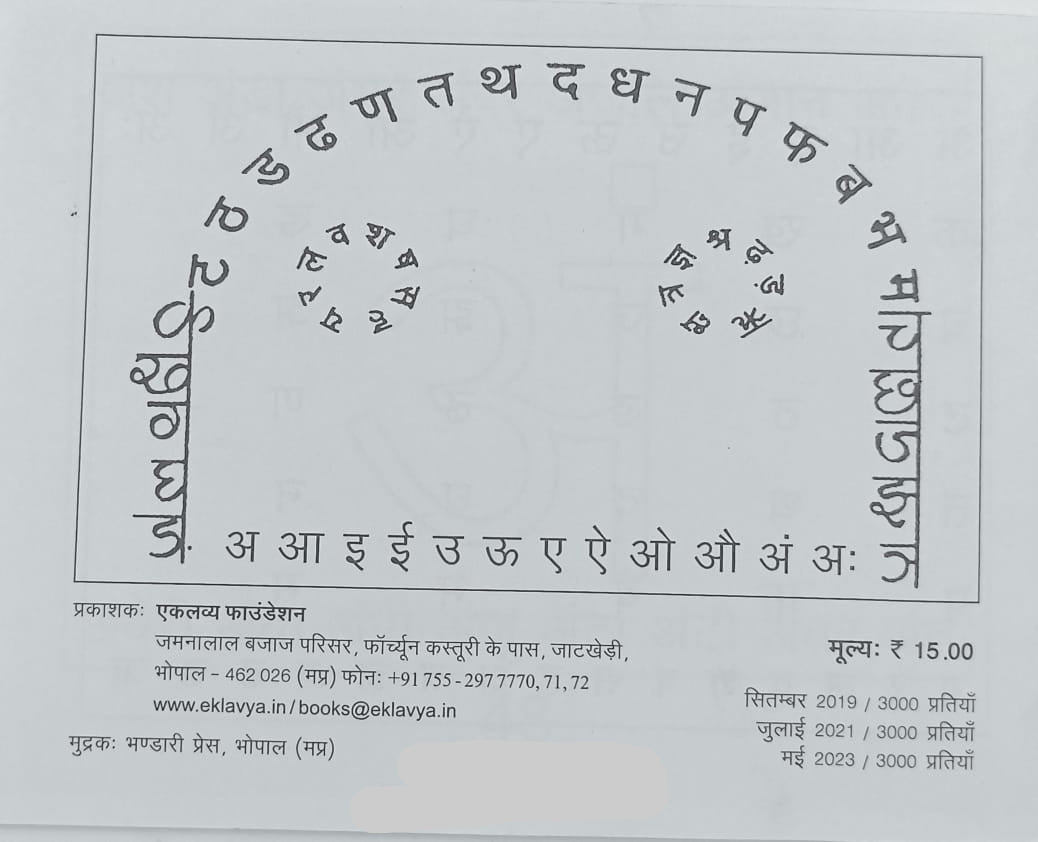 ट ठ ड ढ ण त थ द ध न प फ ब भ म
य र ल व श ष स ह
क्ष त्र ज्ञ श्र ऋ
क ख ग घ ङ
च छ ज झ ञ
अ आ इ ई उ ऊ ए ऐ ओ औ अं अः
प्रकाशकः एकलव्य फाउंडेशन
जमनालाल बजाज परिसर, फॉर्च्यून कस्तूरी के पास, जाटखेड़ी,
भोपाल - 462 026 (मप्र) फोनः +91 755 - 297 7770, 71, 72
www.eklavya.in / books@eklavya.in
मुद्रकः भण्डारी प्रेस, भोपाल (मप्र)
मूल्यः ₹ 15.00
सितम्बर 2019 / 3000 प्रतियाँ
जुलाई 2021 / 3000 प्रतियाँ
मई 2023 / 3000 प्रतियाँ